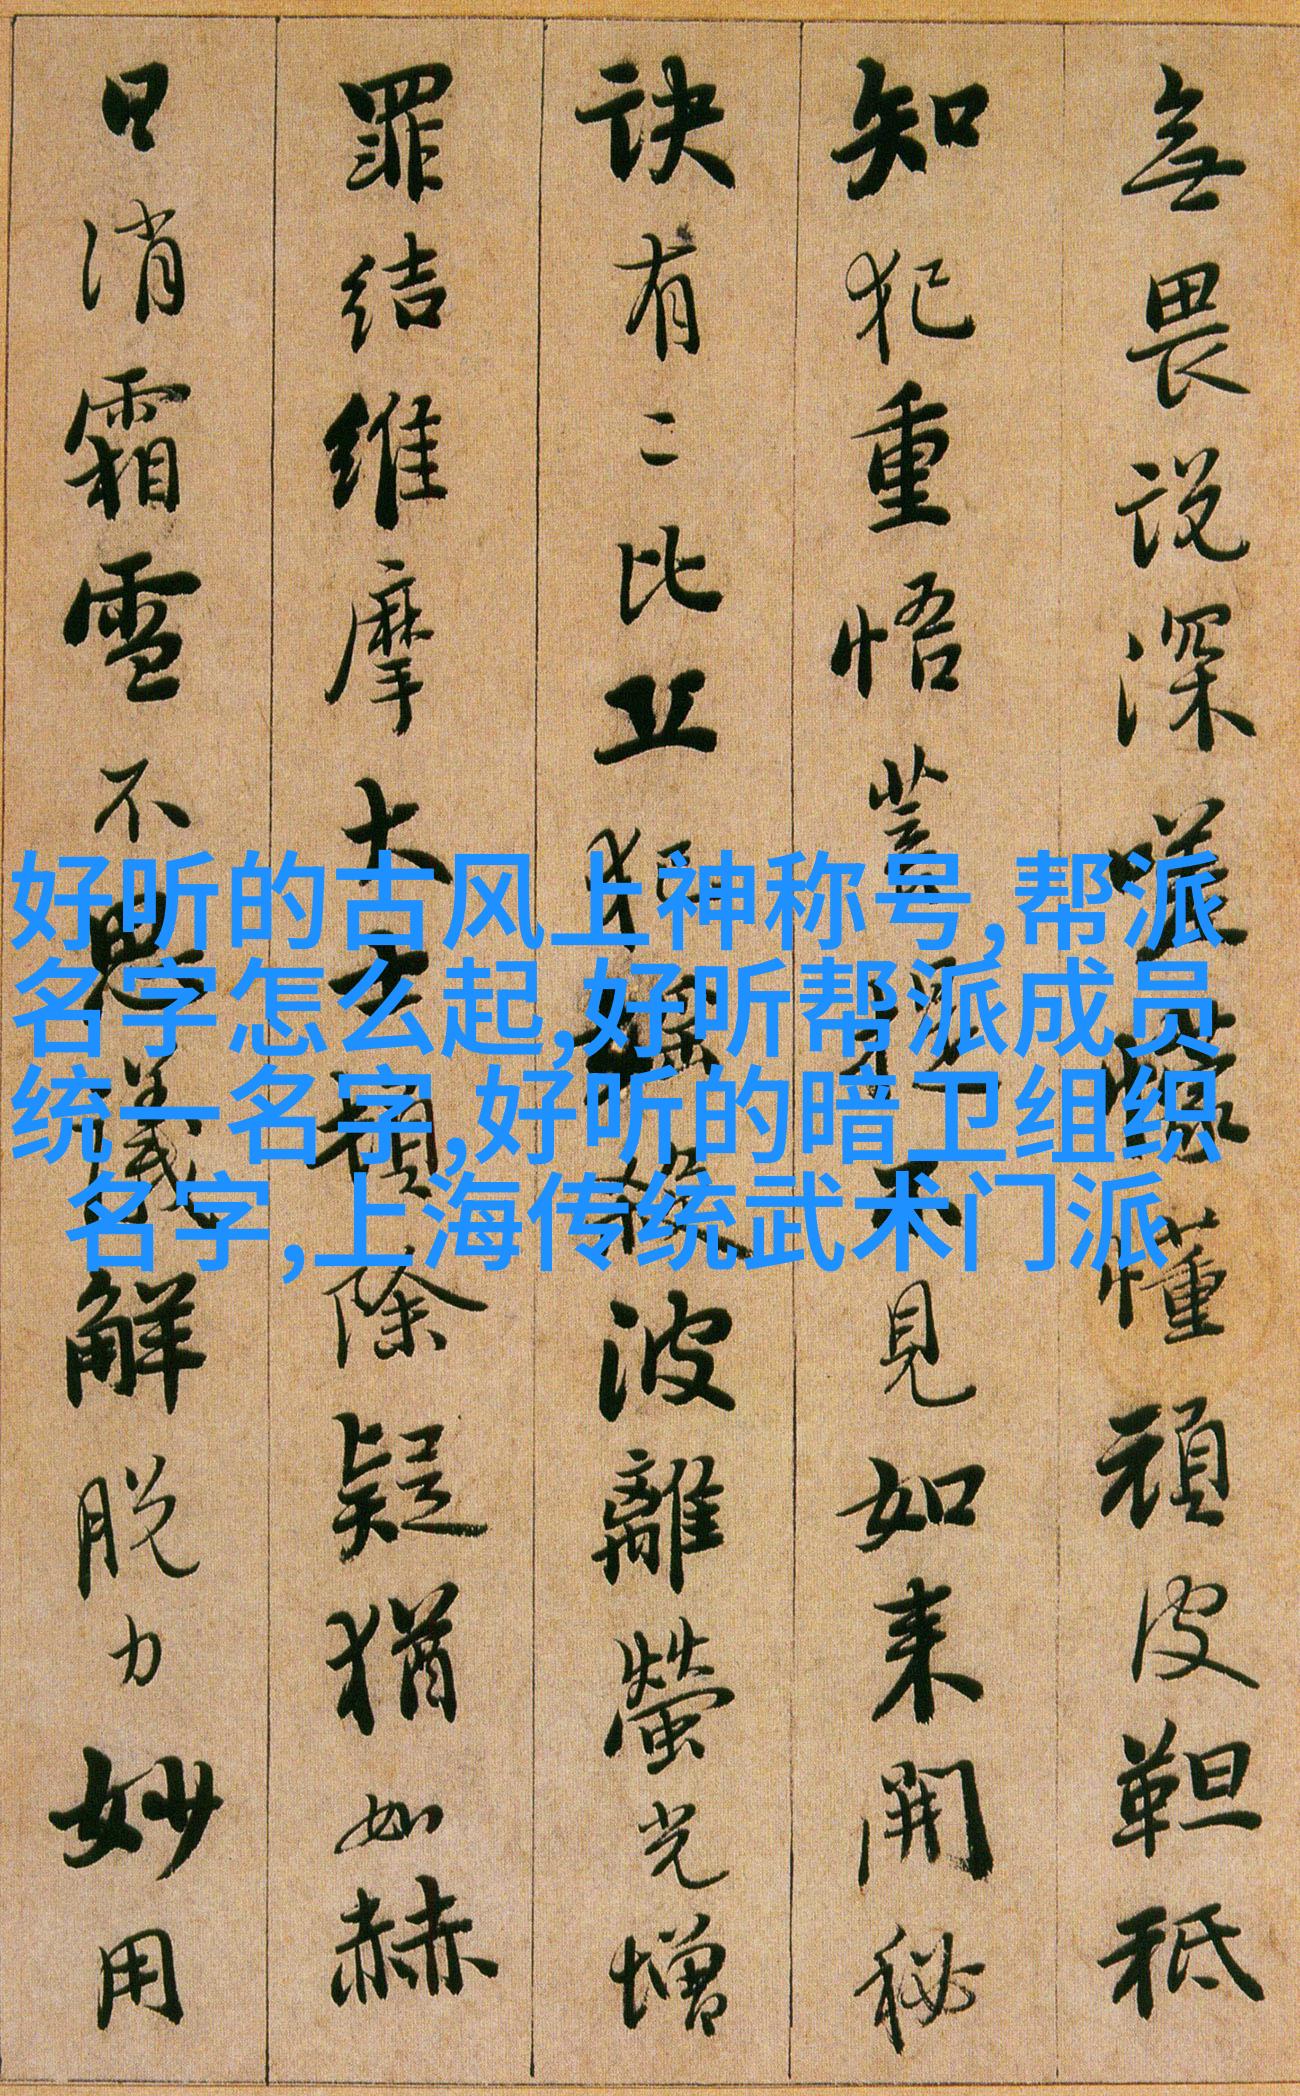 無畏説深嗟懞懂頑皮靼秪
知犯重悟菩提不見如来開秘
訣有二比丘犯婬殺波離螢光增
罪結維摩大士頓除疑猶如赫
日消霜雪不思議解脱力妙用
好听的古风上神称号,帮派
名字怎么起,好听帮派成员
统一名字,好听的暗卫组织
名字,上海传统武术门派